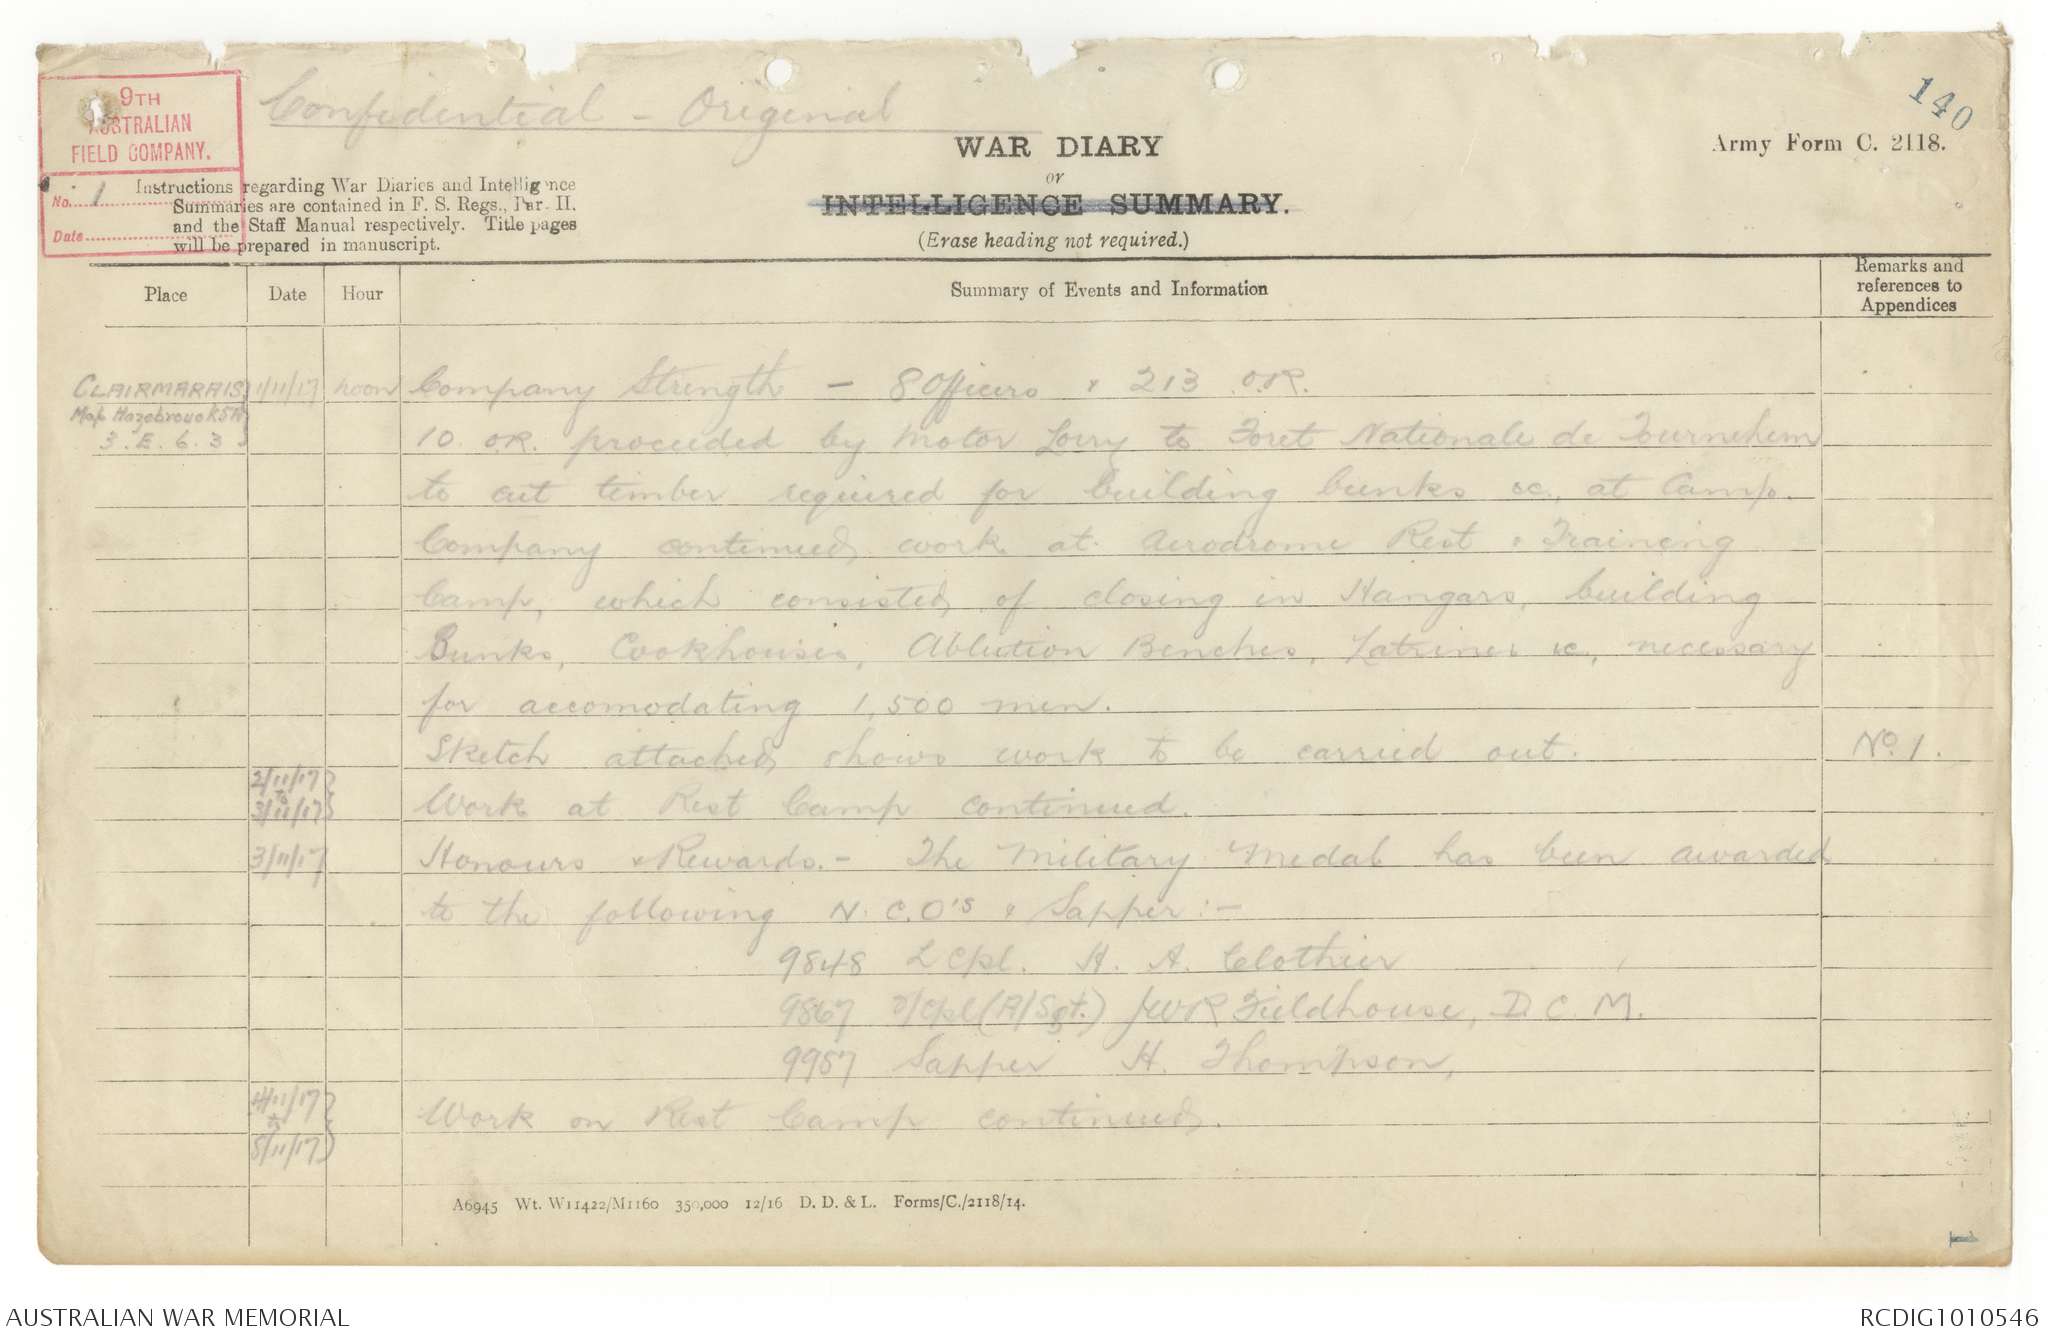 140
9TH
AUSTRALIAN
FIELD COMPANY.
No. 1
Date
Confidential - Original
WAR DIARY
or
INTELLIGENCE SUMMARY.
(Erase heading not required.)
Army Form C. 2118.
Instructions regarding War Diaries and Intelligence
Summaries are contained in F. S. Regs., Par. II.
and the Staff Manual respectively. Title pages
will be prepared in manuscript.
Place Date Hour Summary of Events and Information Remarks and references to Appendices
CLAIRMARAIS 1/11/17 noon Company Strength - 8 Officers & 213 O.R.
Map Hazebrouck 5A
3.E.6.3 10 O.R. proceeded by Motor Lorry to Foret Nationale de Tournehem
to cut timber required for building bunks &c., at Camp.
Company continued work at Aerodrome Rest & Training
Camp, which consisted of closing in Hangars, building
Bunks, Cookhouses, Ablution Benches, Latrines &c., necessary
for accomodating 1,500 men.
Sketch attached shows work to be carried out. No. 1.
2/11/17
to
3/11/17 Work at Rest Camp continued.
3/11/17 Honours & Rewards. - The Military Medal has been awarded
to the following N.C.O's & Sapper :-
9848 L Cpl. H. A. Clothier
9867 2/Cpl (A/Sgt.) J W R Fieldhouse, D.C.M.
9957 Sapper H. Thompson,
4/11/17
to
5/11/17 Work on Rest Camp continued.
A6945 Wt. W11422/M1160 350,000 12/16 D. D. & L. Forms/C./2118/14.
1
AUSTRALIAN WAR MEMORIAL
RCDIG1010546